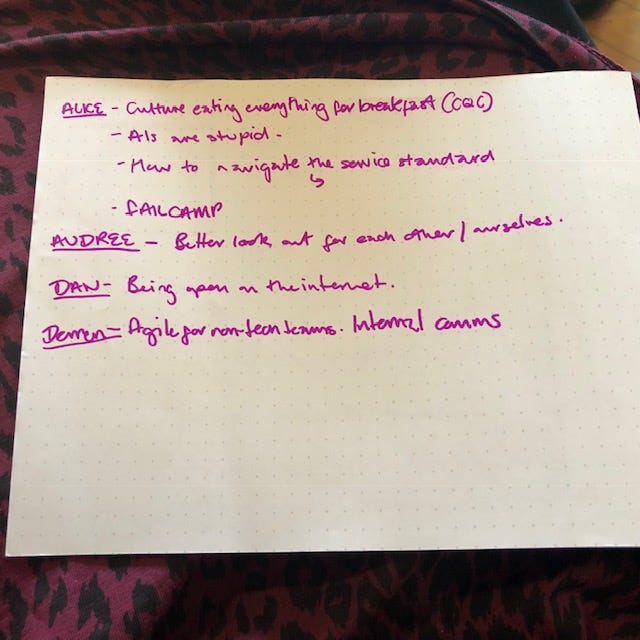 ALICE - Culture eating everything for breakfast (CQC)
- AIs are stupid.
- How to navigate the service standard
↳
- FAILCAMP
AUDREE - Better look out for each other / ourselves.
DAN - Being open on the internet.
= Agile for non-tech teams. Internal comms